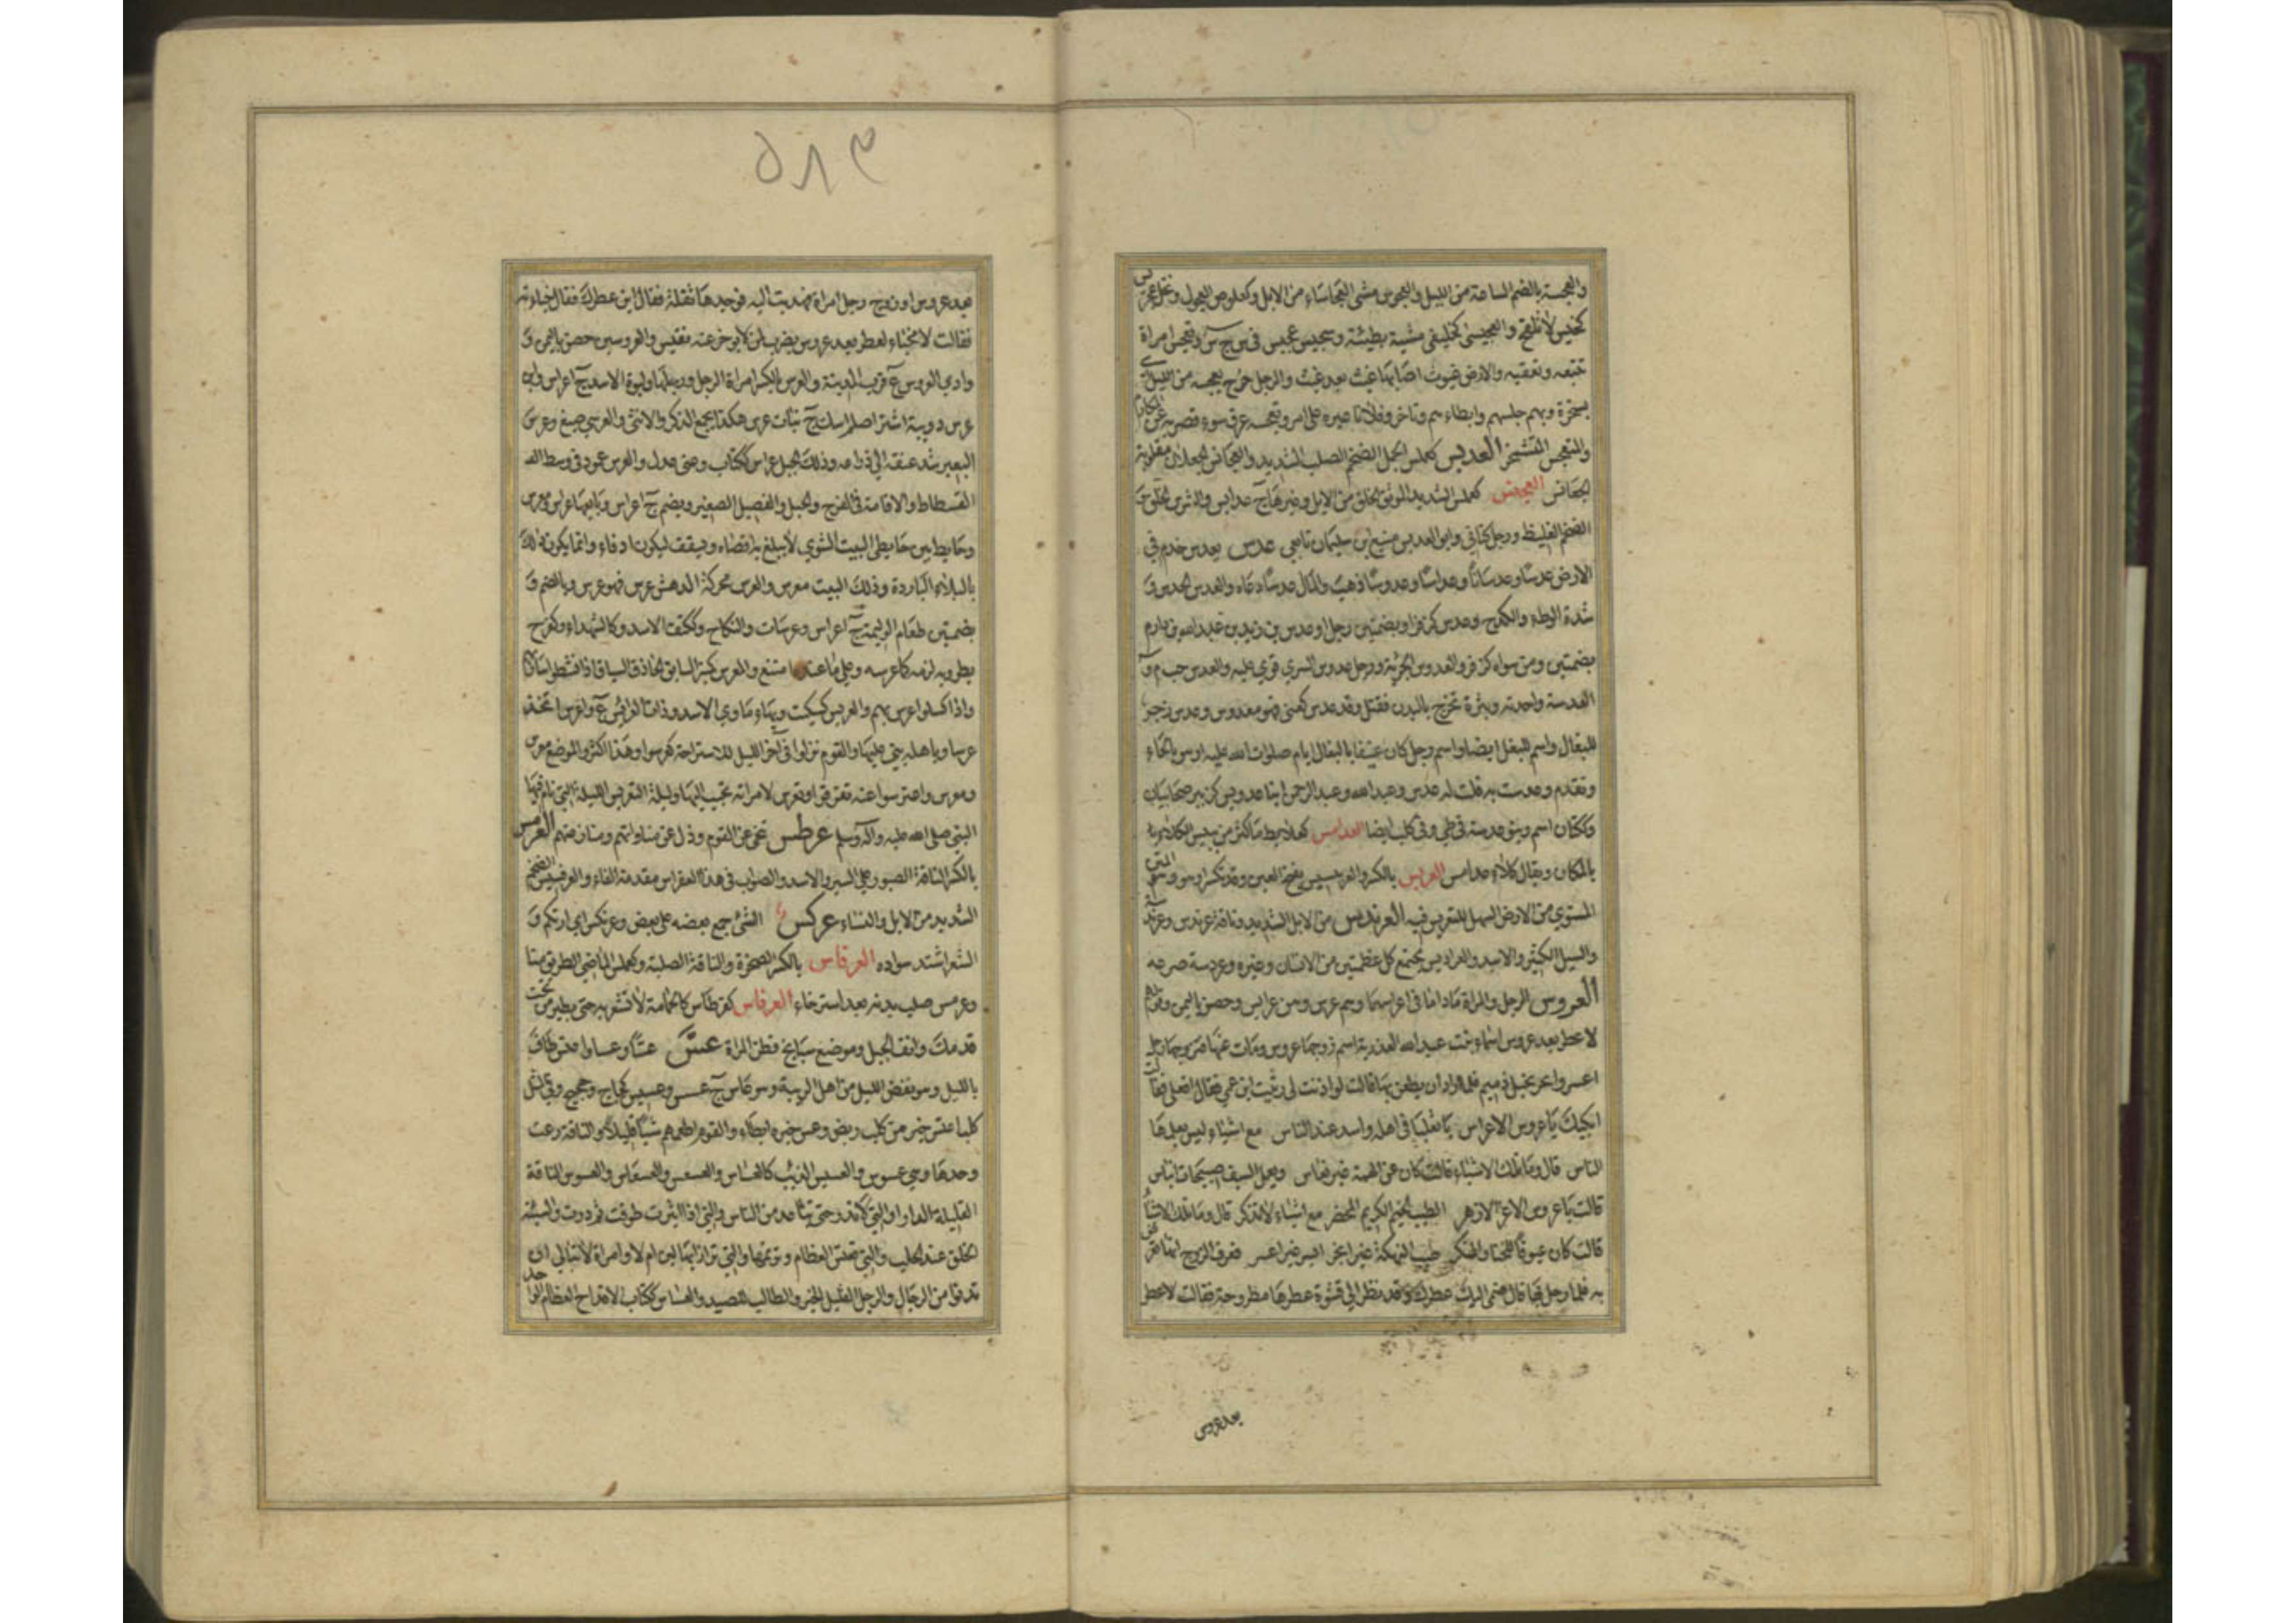 والعجسة بالضم الساعة من الليل والعجوس مشى العجاساء من الابل وكعلوص العجول ونحل عجيس
كخيس لا يلقح والعجيسى كخليفى مشية بطيئة وسجيس عجيس فى س ج س وتعجس امراة
تتبعه وتعقبه والارض غيوث اصابها غيث بعد غيث والرجل خرج بعجسه من الليل اى
بسحرة وبهم حبسهم وابطاء بهم وتاخر وفلانا عيره على امر وتعجسه عرق سوء قصر به عن المكارم
العجنس كعملس الجمل الضخم الصلب الشديد والعجانس الجعلان مقلوبة
الجعانس العدبس كعملس الشديد الموثق الخلق من الابل وغيرها ج عدابس والشرس الخلق و
الضخم الغليظ ورجل كنانى وابو العدبس منيع بن سليمان تابعى عدس يعدس خدم فى
الارض عدسا وعدسانا وعداسا وعدوسا ذهب والمال عدسا رعاه والعدس الحدس و
شدة الوطء والكدح وعدس كزفر او بضمتين رجل او عدس بن زيد بن عبد الله بن دارم
بضمتين ومن سواه كزفر والعدوس الجريئة ورجل عدوس السرى قوى عليه والعدس حب م و
العدسة واحدته وبثرة تخرج بالبدن فتقتل وقد عدس كعنى فهو معدوس وعدس زجر
للبغال واسم للبغل ايضا واسم رجل كان عنيفا بالبغال ايام صلوات الله عليه او س بالحاء
وتقدم وعدست به قلت له عدس وعبد الله وعبد الرحمن ابنا عديس كزبير صحابيان
وككتان اسم وبنو عدسة فى طى وفى كلب ايضا العدامس كعلابط ما كثر من يبيس الكلاء
بالمكان ويقال كلاء عدامس العربس بالكسر والعربسيس بفتح العين وقد تكسر او هو وهم المتن
المستوى من الارض السهل للتعريس فيه العرندس من الابل الشديد وناقة عرندس وعرندسة
والسيل الكثير والاسد والعراديس مجتمع كل عظمين من الانسان وغيره وعردسه صرعه
العروس الرجل والمراة ما داما فى اعراسهما وهم عرس وهن عرايس وحصن باليمن وفى
لا عطر بعد عروس اسماء بنت عبد الله العذرية اسم زوجها عروس ومات عنها فتزوجها رجل
اعسر ابخر بخيل ذميم فلما اراد ان يظعن بها قالت لو اذنت لى رثيت ابن عمى فقال افعلى فقالت
ابكيك يا عروس الاعراس يا ثعلبا فى اهله واسد عند الناس مع اشياء ليس يعلمها
الناس قال وما تلك الاشياء قالت كان عن الهمة غير نعاس ويعمل السيف صبيحات الباس
قالت يا عروس الاغر الازهر الطيب الخيم الكريم المحضر مع اشياء لا تذكر قال وما تلك الاشياء
قالت كان عيوفا للخنا والمنكر طيب النكهة غير ابخر ايسر غير اعسر فعرف الزوج انها تعرض
به فلما رحل بها قال ضمى اليك عطرك وقد نظر الى قشوة عطرها مطروحة فقالت لا عطر
بعد عروس
٥٨٣
بعد عروس او تزوج رجل امراة فهديت اليه فوجدها ثفلة فقال اين عطرك فقال خباءته
فقالت لا مخباء لعطر بعد عروس يضرب لمن لا يدخر عنه نفيس والعروسين حصن باليمن و
وادى العروس ع قرب المدينة والعرس بالكسر امراة الرجل ورجلها ولبوة الاسد ج اعراس وابن
عرس دويبة اشتر اصلم اسك ج بنات عرس هكذا يجمع الذكر والانثى والعرسى صبغ وعرس
البعير شد عنقه الى ذراعه وذلك الحبل عراس ككتاب وعنى عدل والعرس عمود فى وسط
الفسطاط والاقامة فى الفرح والحبل والفصيل الصغير ويضم ج اعراس وبايعها عراس ومعرس
وحايط بين حايطى البيت الشتوى لا يبلغ به اقصاه ويسقف ليكون ادفاء وانما يكون ذلك
بالبلاد الباردة وذلك البيت معرس والعرس محركة الدهش عرس فهو عرس وبالضم و
بضمتين طعام الوليمة ج اعراس وعرسات والنكاح وككتف الاسد وكالشهداء وكفرح
بطر وبه لزمه كاعرسه وعلى ما عنده امتنع والمعرس كمنبر السايق الحاذق السياق اذا نشطوا سار بهم
واذا كسلوا عرس بهم والعريس كسكيت وبهاء ماوى الاسد وذات العرائس ع واعرس اتخذ
عرسا وباهله بنى عليها والقوم نزلوا فى آخر الليل للاستراحة كعرسوا وهذا اكثر والموضع معرس
ومعرس واعترسوا عنه تفرقوا وتعرس لامراته تحبب اليها وليلة التعريس الليلة التى نام فيها
النبى صلى الله عليه وآله وسلم عرطس تنحى عن القوم وذل عن مناواتهم ومنازعتهم العرمس
بالكسر الناقة الصبور على السير والاسد والصواب فى هذا العفراس مقدمة الفاء والعرفسيس الضخم
الشديد من الابل والنساء عركس الشئ جمع بعضه على بعض وعرنكس اى ارتكم و
الشعر اشتد سواده العرماس بالكسر الصخرة والناقة الصلبة وكعملس الماضى الظريف منا
وعرمس صلب بدنه بعد استرخاء العرناس كقرطاس كالحمامة لا تشعر به حتى يطير من تحت
قدمك وانف الجبل وموضع سبايخ قطن المراة عس عسا وعسا واعتس طاف
بالليل وهو نفض الليل من اهل الريبة وهو عاس ج عسس وعسيس كحاج وحجيج وفى المثل
كلب اعتس خير من كلب ربض وعس خبره ابطاء والقوم اطعمهم شيا قليلا والناقة رعت
وحدها وهى عسوس والعسيس الذئب كالعساس والعسعس والعسعاس والعسوس الناقة
القليلة الدر او التى لا تدر حتى تباعد من الناس والتى اذا اثيرت طوفت ثم درت والسيئة
الخلق عند الحلب والتى تعتس العظام وترتمها والتى تراز ابها لبن ام لا وامراة لا تبالى ان
تدنو من الرجال والرجل القليل الخير والطالب للصيد والعساس ككتاب الاقداح العظام الواحد